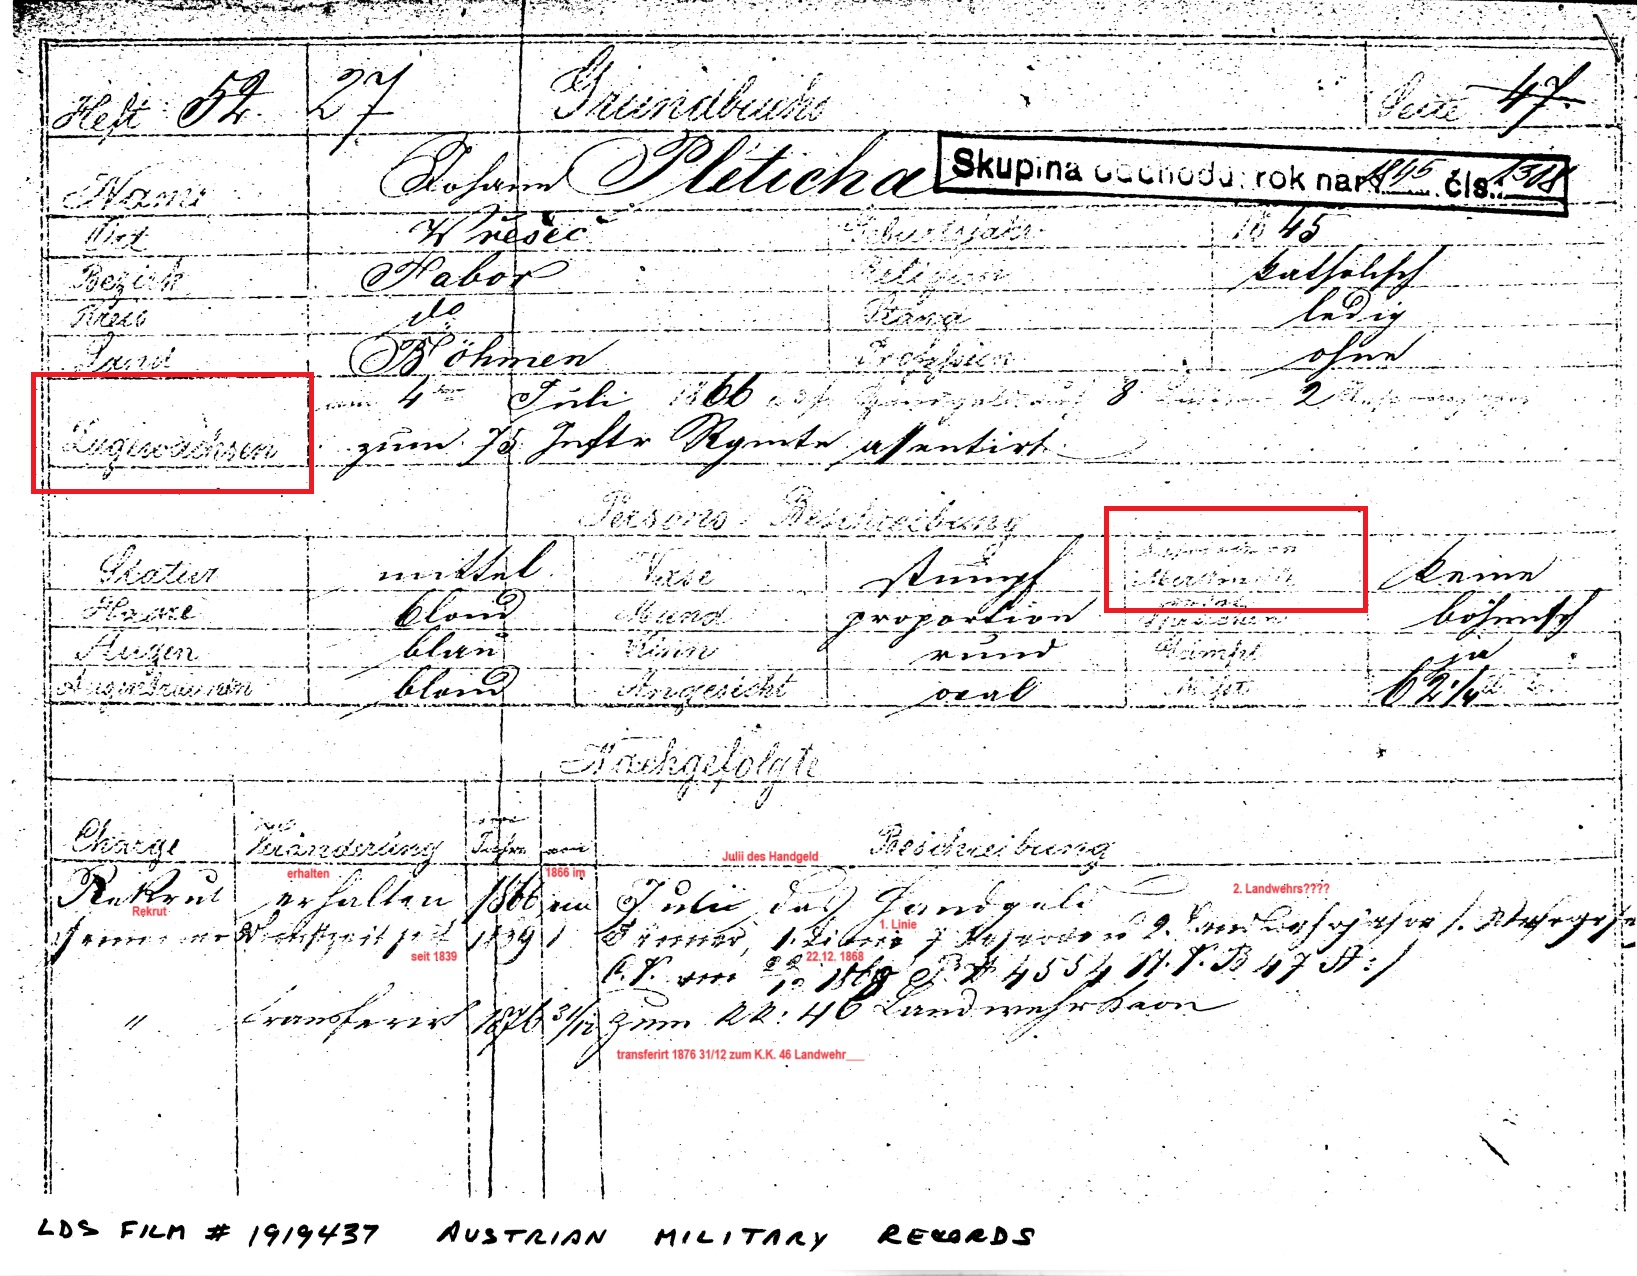 Heft 52. 27 Grundbuchs Seite 47.
Name Johann Pleticha
Skupina odchodu: rok nar. 1845 čís.: 1318
Ort Wřešec Geburtsjahr 1845
Bezirk Tabor Religion katholisch
Kreis do Stand ledig
Land Böhmen Profession ohne
am 4ten Juli 1866 auf 8 2
Zugewachsen zum 75 Inftr Rgmte assentirt
Persons Beschreibung
Statur mittel Nase stumpf Merkmale keine
Haare blond Mund proportion Sprachen böhmisch
Augen blau Kinn rund Geimpft ja
Augenbraunen blond Angesicht oval Mißt 62 1/4
Nachgefolgte
Charge Veränderung Jahre am Beschreibung
Julii des Handgeld
erhalten
1866 im
Rekrut erhalten 1866 im Julii das Handgeld
2. Landwehrs????
Rekrut
1. Linie
Dienstzeit seit 1839 1 Jänner, 1. Linie 7 Reserve u 2. Landwehrjahre
seit 1839
22.12. 1868
vom 22/12 1868 P. N 4554 N. V. B 47 St:/
" transferirt 1876 31/12 zum KK: 46 Landwehrbaon
transferirt 1876 31/12 zum K.K. 46 Landwehr___
LDS FILM # 1919437 AUSTRIAN MILITARY RECORDS